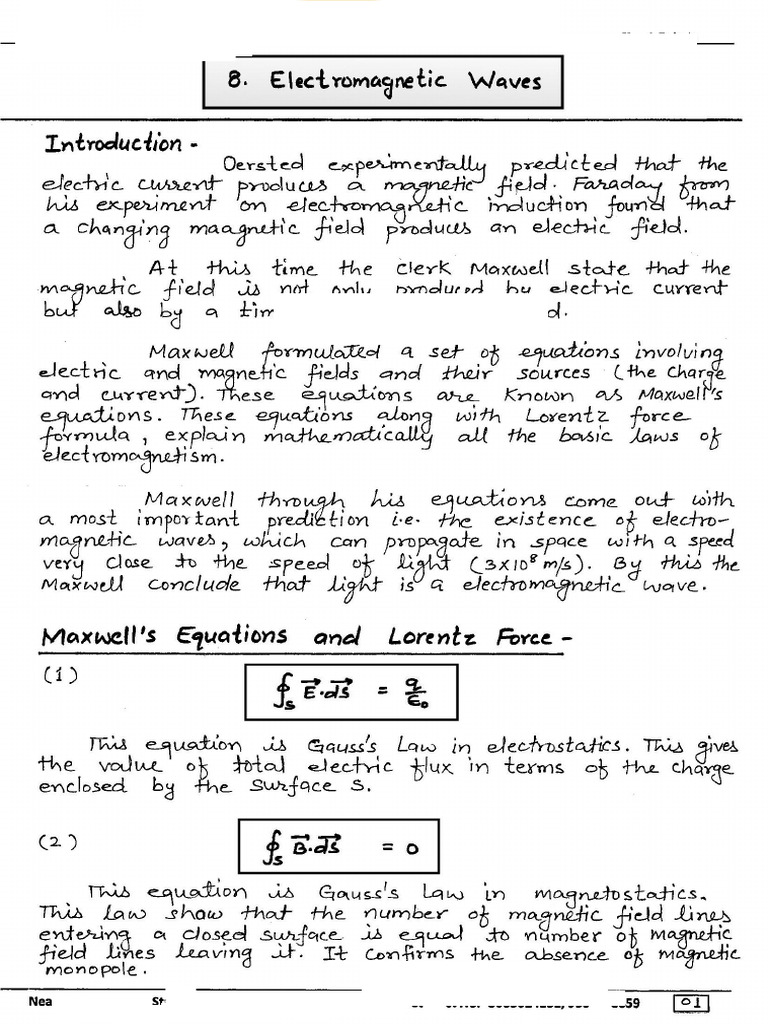 8. Electromagnetic Waves
Introduction -
Oersted experimentally predicted that the
electric current produces a magnetic field. Faraday from
his experiment on electromagnetic induction found that
a changing maagnetic field produces an electric field.
At this time the Clerk Maxwell state that the
magnetic field is not only produced by electric current
but also by a
Maxwell formulated a set of equations involving
electric and magnetic fields and their sources (the charge
and current). These equations are known as Maxwell's
equations. These equations along with Lorentz force
formula, explain mathematically all the basic laws of
electromagnetism.
Maxwell through his equations come out with
a most important prediction i.e. the existence of electro-
magnetic waves, which can propagate in space with a speed
very close to the speed of light (3×10⁸ m/s). By this the
Maxwell conclude that light is a electromagnetic wave.
Maxwell's Equations and Lorentz Force -
(1)
∮ₛ E⃗·ds⃗ = q/ε₀
This equation is Gauss's Law in electrostatics. This gives
the value of total electric flux in terms of the charge
enclosed by the surface S.
(2)
∮ₛ B⃗·ds⃗ = 0
This equation is Gauss's Law in magnetostatics.
This law show that the number of magnetic field lines
entering a closed surface is equal to number of magnetic
field lines leaving it. It confirms the absence of magnetic
monopole.
Nea
59 01